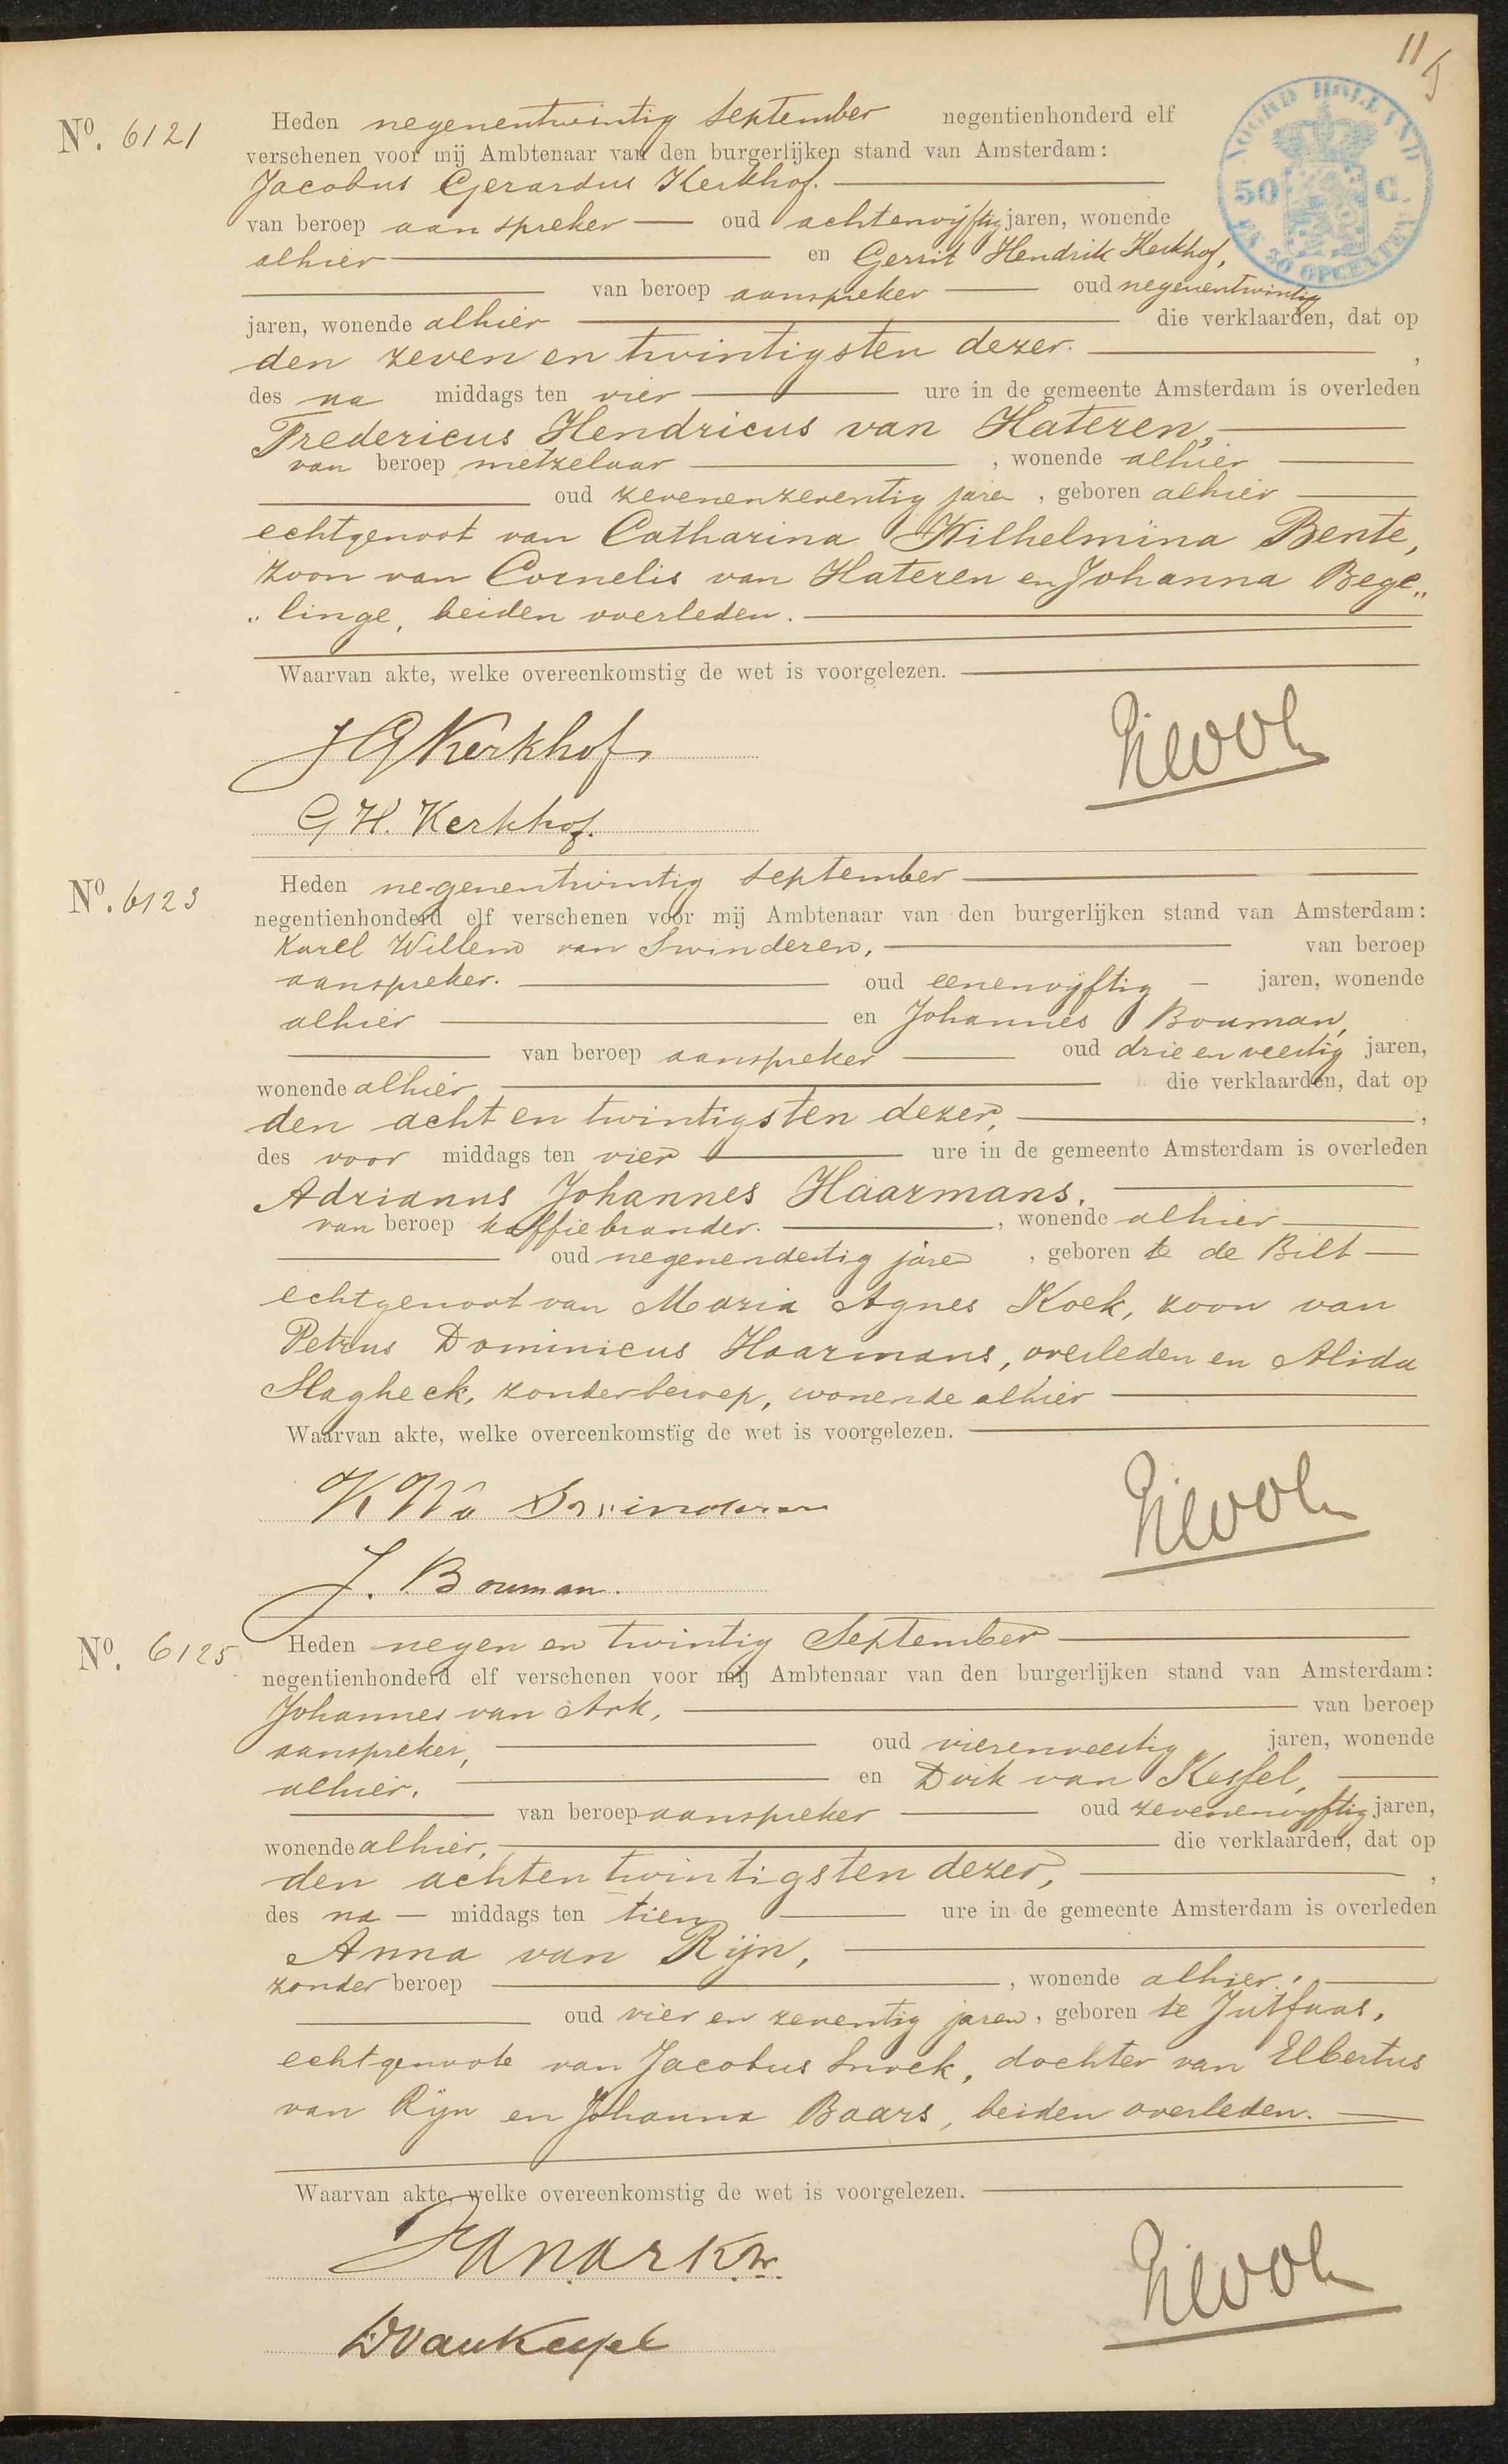 115
NOORD HOLLAND
50 C.
EN 30 OPCENTEN
No. 6121
Heden negenentwintig September negentienhonderd elf
verschenen voor mij Ambtenaar van den burgerlijken stand van Amsterdam:
Jacobus Gerardus Kerkhof.
van beroep aanspreker oud achtenvijftig jaren, wonende
alhier en Gerrit Hendrik Kerkhof,
van beroep aanspreker oud negenentwintig
jaren, wonende alhier die verklaarden, dat op
den zeven en twintigsten dezer. ,
des na middags ten vier ure in de gemeente Amsterdam is overleden
Fredericus Hendricus van Hateren,
van beroep metzelaar , wonende alhier
oud zevenenzeventig jaren , geboren alhier
echtgenoot van Catharina Wilhelmina Bente,
zoon van Cornelis van Hateren en Johanna Bege„
„linge, beiden overleden.
Waarvan akte, welke overeenkomstig de wet is voorgelezen.
J G Kerkhof
G H. Kerkhof.
No. 6123
Heden negenentwintig September
negentienhonderd elf verschenen voor mij Ambtenaar van den burgerlijken stand van Amsterdam:
Karel Willem van Swinderen, van beroep
aanspreker. oud eenenvijftig jaren, wonende
alhier en Johannes Bouman,
van beroep aanspreker oud drie en veertig jaren,
wonende alhier die verklaarden, dat op
den acht en twintigsten dezer, ,
des voor middags ten vier ure in de gemeente Amsterdam is overleden
Adrianus Johannes Haarmans.
van beroep koffiebrander. , wonende alhier
oud negenendertig jaren , geboren te de Bilt
echtgenoot van Maria Agnes Koek, zoon van
Petrus Dominicus Haarmans, overleden en Alida
Slagheck, zonder beroep, wonende alhier
Waarvan akte, welke overeenkomstig de wet is voorgelezen.
K W v Swinderen
J. Bouman.
No. 6125
Heden negen en twintig September
negentienhonderd elf verschenen voor mij Ambtenaar van den burgerlijken stand van Amsterdam:
Johannes van Ark, van beroep
aanspreker, oud vierenveertig jaren, wonende
alhier. en Dirk van Kessel,
van beroep aanspreker oud zevenenvijftig jaren,
wonende alhier, die verklaarden, dat op
den achtentwintigsten dezer, ,
des na middags ten tien ure in de gemeente Amsterdam is overleden
Anna van Rijn,
zonder beroep , wonende alhier,
oud vier en zeventig jaren, geboren te Jutfaas,
echtgenoote van Jacobus Snoek, dochter van Elbertus
van Rijn en Johanna Baars, beiden overleden.
Waarvan akte, welke overeenkomstig de wet is voorgelezen.
J van Ark
D van Kessel